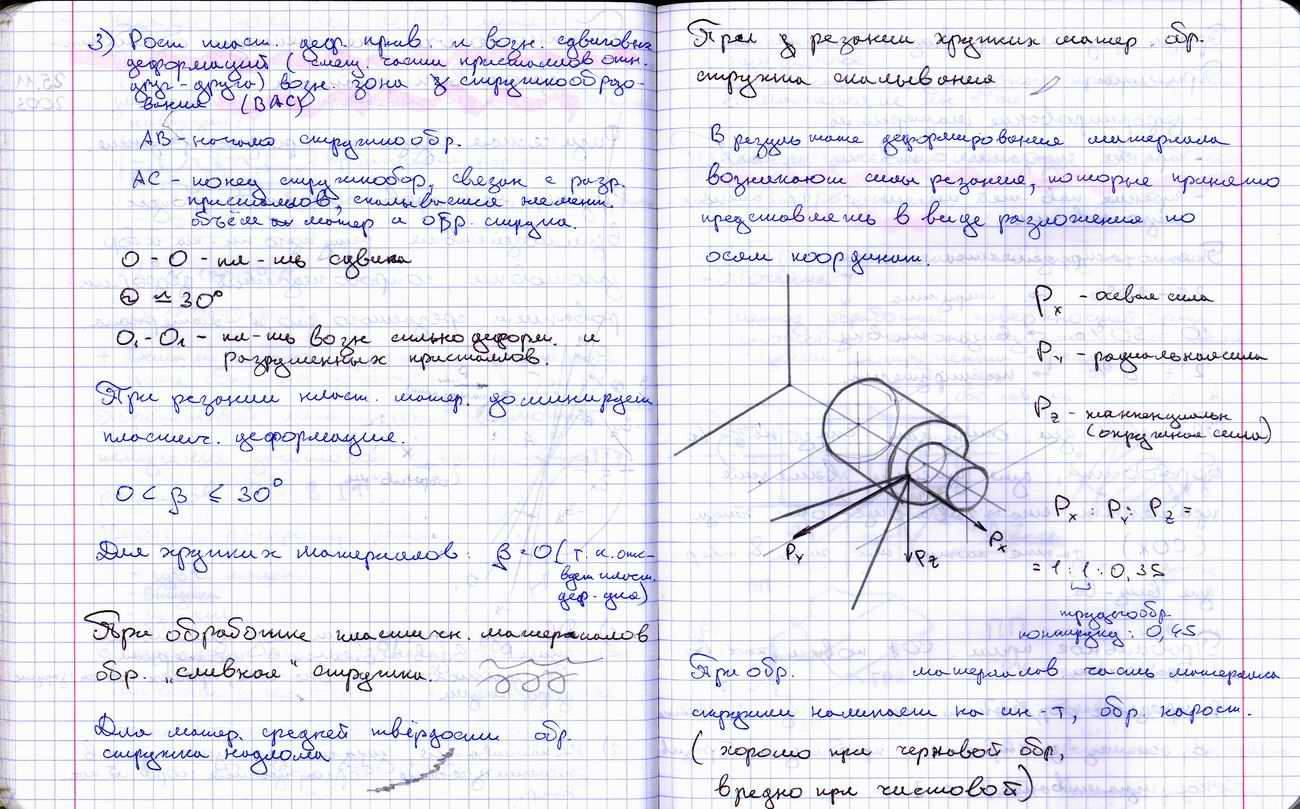 3) Рост пласт. деф. прив. к возн. сдвиговых
деформаций (смещ. части кристаллов отн.
друг-друга) возн. зона стружкообразо-
вания (ВАС)
АВ - начало стружкообр.
АС - конец стружкообр, связан с разр.
кристаллов, скалывается элемент.
объём матер и обр. стружка.
О - О - пл-ть сдвига
Θ ≃ 30°
О₁ - О₁ - пл-ть возн сильнодеформ. и
разрушенных кристаллов.
При резании пласт. матер. доминирует
пластич. деформация.
0 < β ≤ 30°
Для хрупких материалов: β = 0 (т.к. отс-
вует пласт.
деф-ция)
При обработке пластичн. материалов
обр. „сливная" стружка.
Для матер. средней твёрдости обр.
стружка надлома
При резании хрупких матер. обр.
стружка скалывания
В результате деформирования материала
возникают силы резания, которые принято
представлять в виде разложения по
осям координат.
Pₓ - осевая сила
Pʏ - радиальная сила
P_z - танкенциальн
(окружная сила)
Pʏ
P_z
Pₓ
Pₓ : Pʏ : P_z =
= 1 : 1 : 0,35
0,45
При обр. материалов часть материала
стружки налипает на ин-т, обр. нарост.
(хорошо при черновой обр,
вредно при чистовой)